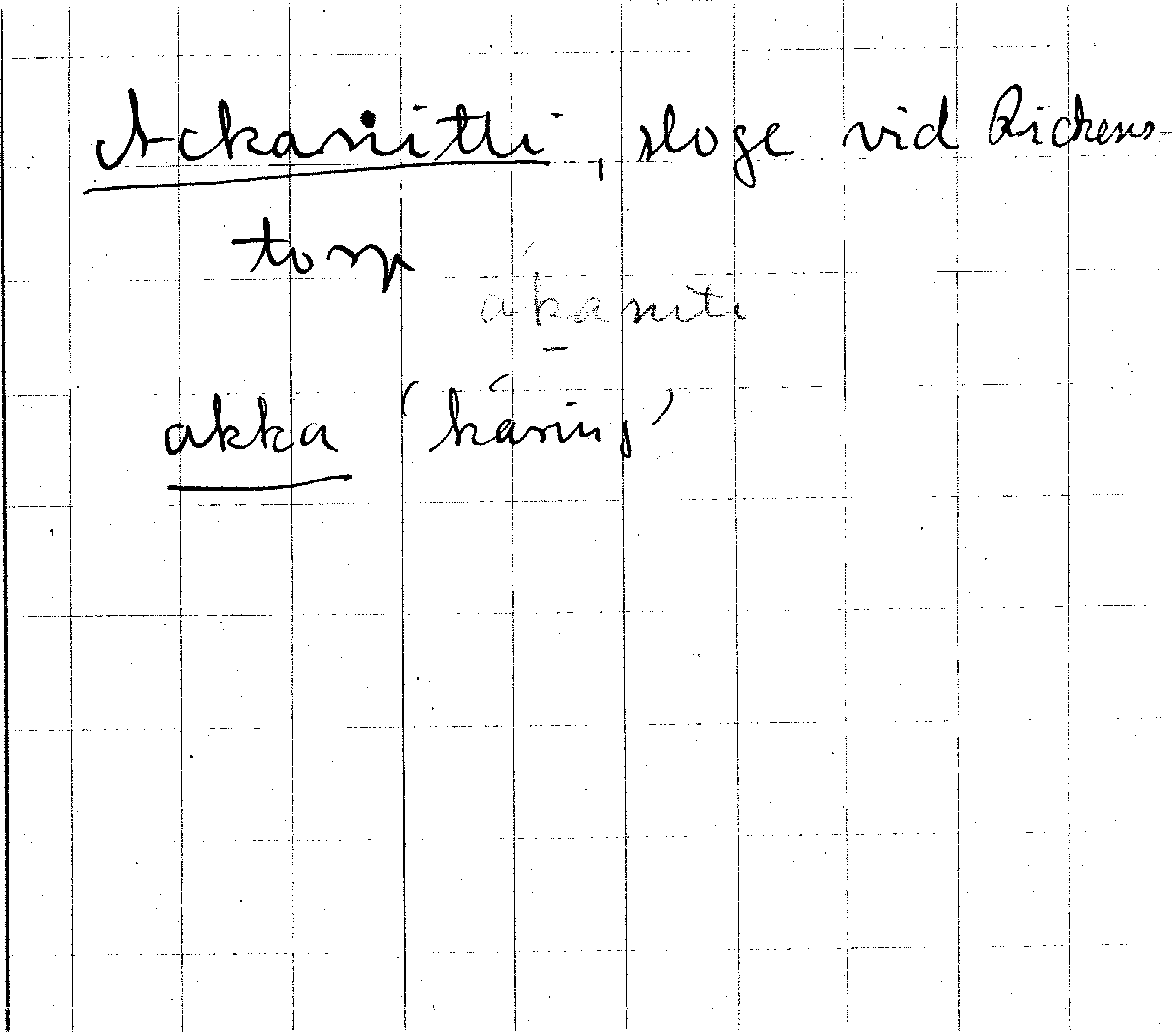 Ackanitti, sloge vid Rickens-
torp
akaniti
akka 'käring'